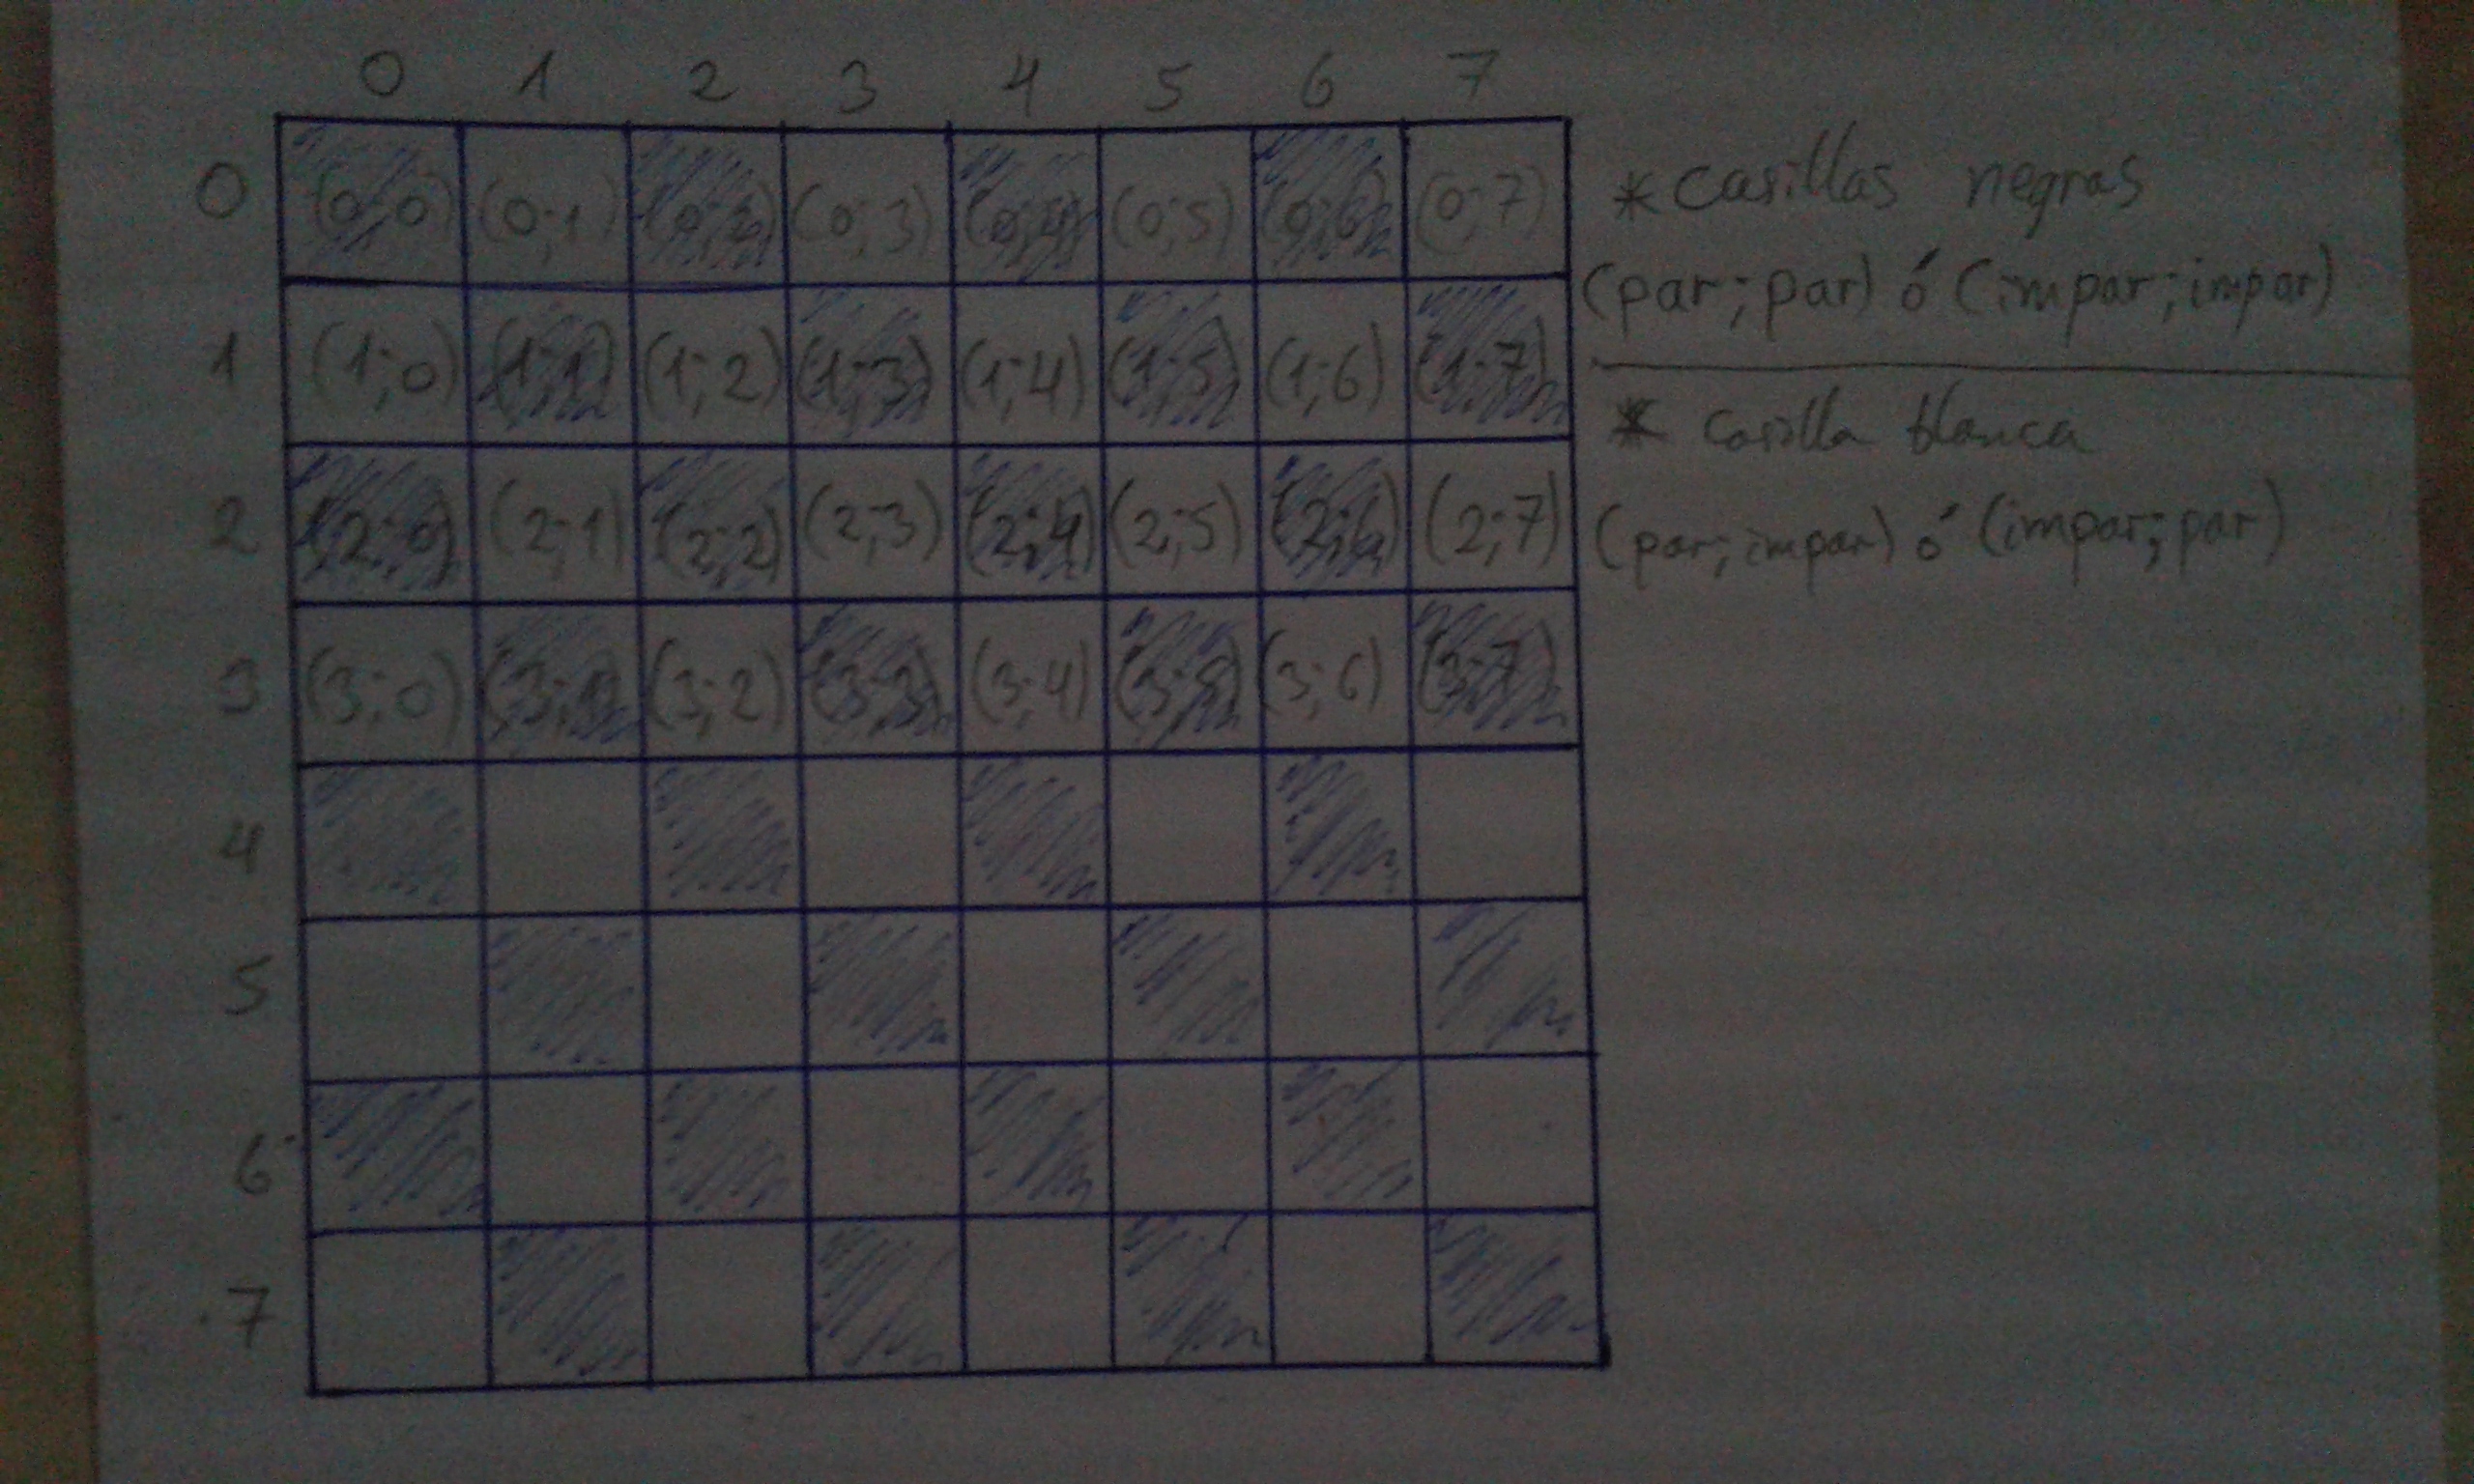 0 1 2 3 4 5 6 7
0 (0;0) (0;1) (0;2) (0;3) (0;4) (0;5) (0;6) (0;7)
1 (1;0) (1;1) (1;2) (1;3) (1;4) (1;5) (1;6) (1;7)
2 (2;0) (2;1) (2;2) (2;3) (2;4) (2;5) (2;6) (2;7)
3 (3;0) (3;1) (3;2) (3;3) (3;4) (3;5) (3;6) (3;7)
4
5
6
7
* casillas negras
(par;par) ó (impar;impar)
* casilla blanca
(par;impar) ó (impar;par)